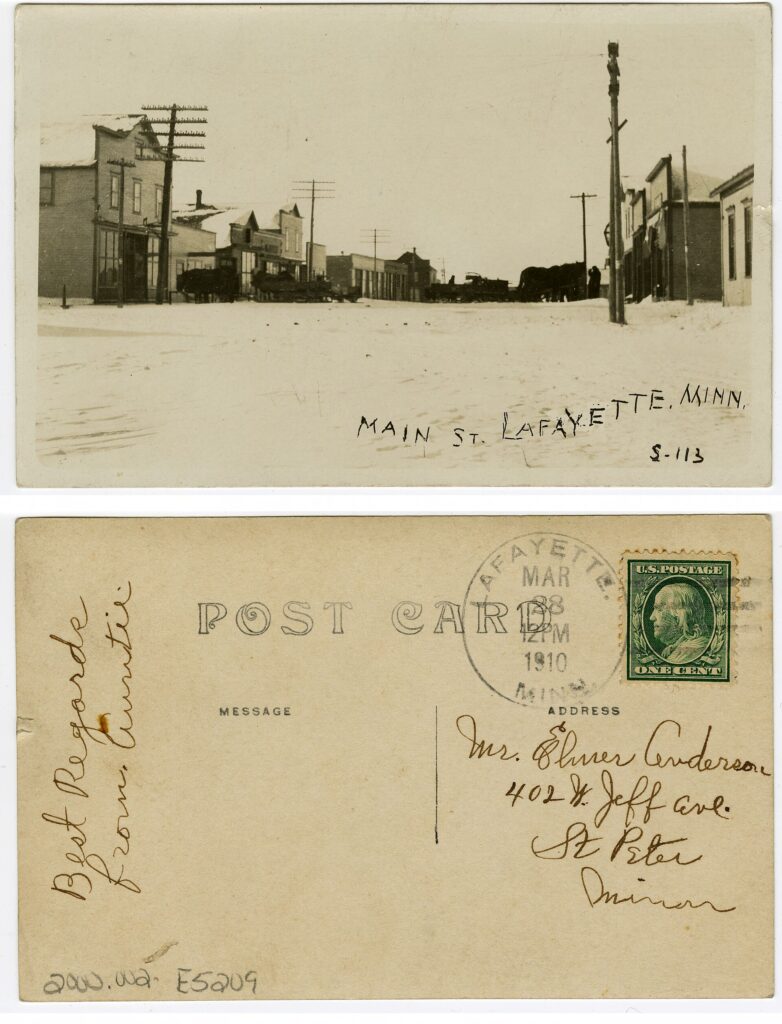 MAIN ST. LAFAYETTE, MINN.
S-113
LAFAYETTE.
MAR
28
12PM
1910
MINN.
U.S. POSTAGE
ONE CENT
POST CARD
MESSAGE
ADDRESS
Best Regards
from. Auntie
Mr. Elmer Anderson
402 W. Jeff ave.
St Peter
Minn
2000.002. E5209